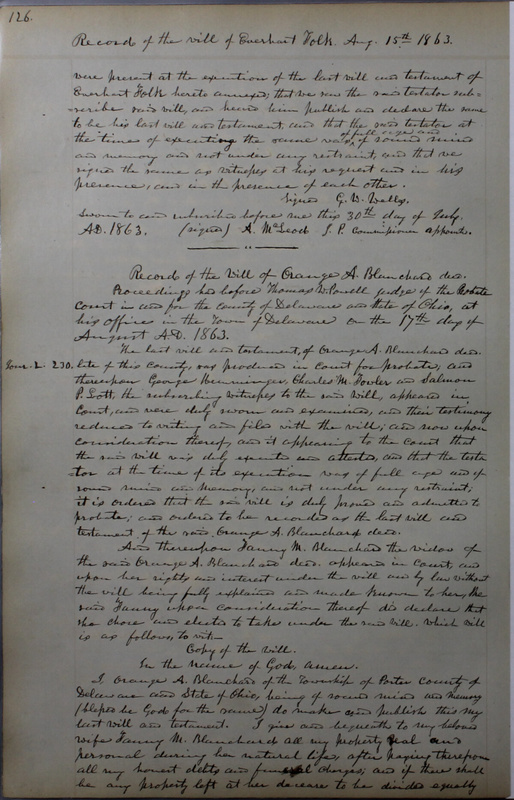 126.
Record of the will of Everhart Folk. Aug. 15th 1863.
were present at the execution of the last will and testament of
Everhart Folk hereto annexed; that we saw the said testator sub=
=scribe said will, and heard him publish and declare the same
to be his last will and testament, and that the said testator at
the time of executing the same was of full age and of sound mind
and memory and not under any restraint, and that we
signed the same as witnesses at his request and in his
presence, and in the presence of each other.
Signed G. W. Walls.
Sworn to and subscribed before me this 30th day of July
A.D. 1863. (signed) A. McLeod J. P. Commissioner appointed.
Record of the Will of Orange A. Blanchard decd.
Proceedings had before Thomas W. Powell judge of the Probate
Court in and for the County of Delaware and State of Ohio, at
his office in the Town of Delaware on the 17th day of
August A.D. 1863.
The last will and testament, of Orange A. Blanchard decd.
Jour. 2. 230. late of this County, was produced in Court for probate; and
thereupon George Henninger, Charles M. Fowler and Salmon
P. Lott, the subscribing witnesses to the said will, appeared in
Court, and were duly sworn and examined, and their testimony
reduced to writing and filed with the will; and now upon
consideration thereof, and it appearing to the Court that
the said will was duly executed and attested, and that the testa
tor at the time of its execution was of full age and of
sound mind and memory, and not under any restraint;
it is ordered that the said will is duly proved and admitted to
probate; and ordered to be recorded as the last will and
testament of the said Orange A. Blanchard decd.
And thereupon Fanny M. Blanchard the widow of
the said Orange A. Blanchard decd. appeared in Court, and
upon her rights and interest under the will and by law without
the will being fully explained and made known to her, the
said Fanny upon consideration thereof did declare that
she chose and elected to take under the said will. Which will
is as follows, to wit—
Copy of the will.
In the name of God, amen.
I Orange A. Blanchard of the Township of Porter County of
Delaware and State of Ohio, being of sound mind and memory
(blessed be God for the same) do make and publish this my
last will and testament. I give and bequeath to my beloved
wife Fanny M. Blanchard all my property real and
personal during her natural life, after paying therefrom
all my honest debts and funeral charges, and if there shall
be any property left at her decease to be divided equally